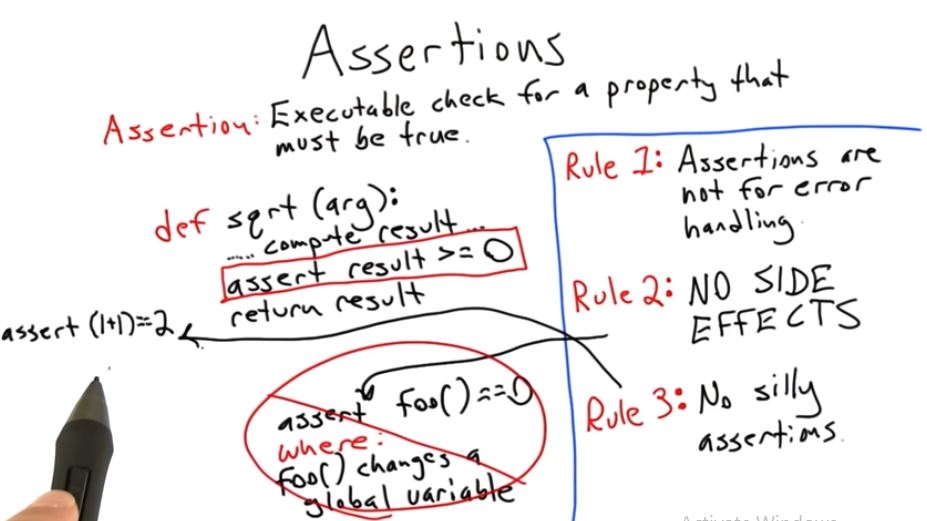 Assertions
Assertion: Executable check for a property that
must be true.
def sqrt (arg):
..... compute result ...
assert result >= 0
return result
assert (1+1)==2
assert foo() == 0
where:
foo() changes a
global variable
Rule 1: Assertions are
not for error
handling.
Rule 2: NO SIDE
EFFECTS
Rule 3: No silly
assertions.
Activate Windows